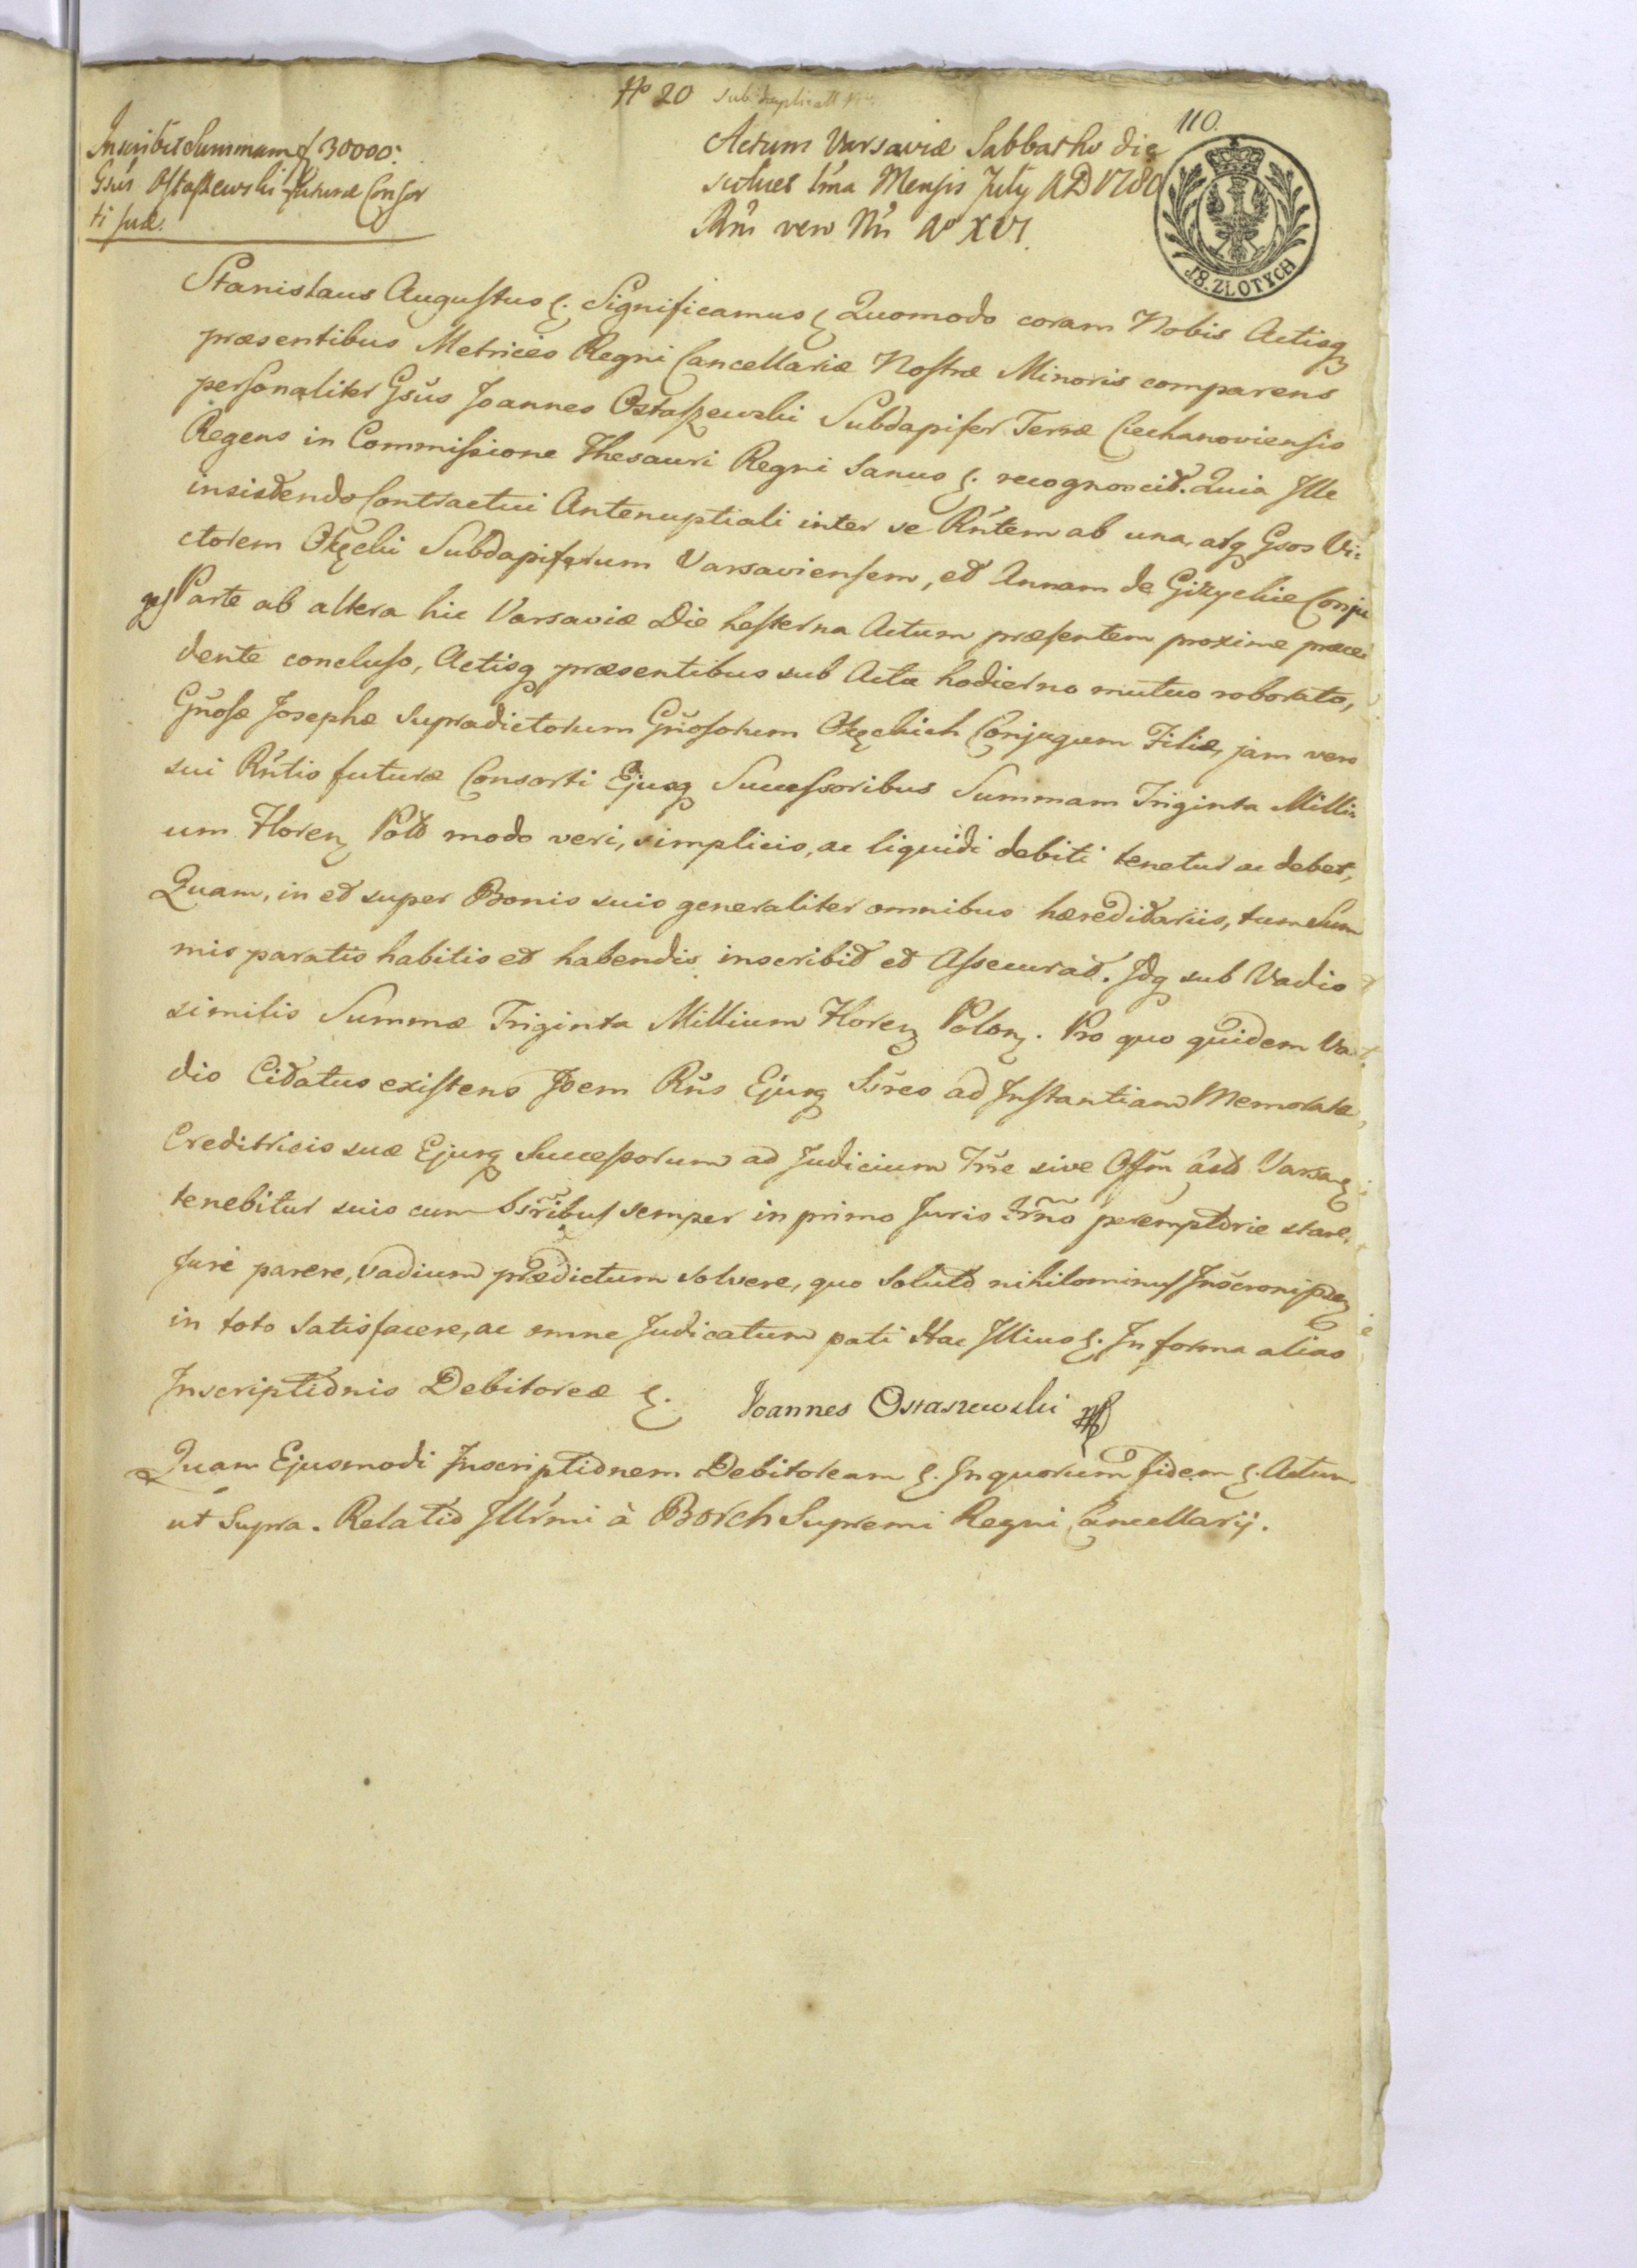 No 20
110.
Inscribit Summam f 30000:
Gsus Ostaszewski futuræ Consor
ti suæ.
Actum Varsaviæ Sabbatho die
scilicet 1ma Mensis July AD 1780
Rni vero Nri Ao XVI.
18. ZŁOTYCH
Stanislaus Augustus &. Significamus & Quomodo coram Nobis Actisq
præsentibus Metrices Regni Cancellariæ Nostræ Minoris comparens
personaliter Gsus Joannes Ostaszewski Subdapifer Terræ Ciechanoviensis
Regens in Commissione Thesauri Regni Sanus &. recognoscit. Quia Ille
insistendo Contractui Antenuptiali inter se Rntem ab una, atq Gsos Vi=
ctorem Okęcki Subdapiferum Varsaviensem, et Annam de Giżyckie Conju
ges Parte ab altera hic Varsaviæ Die hesterna Actum præsentem proxime præce
dente concluso, Actisq præsentibus sub Actu hodierno mutuo roborato,
Gnosæ Josephæ supradictorum Gnosorum Okęckich Conjugum Filiæ, jam vero
sui Rntis futuræ Consorti Ejusq Successoribus Summam Triginta Milli
um Floren Pold modo veri, simplicis, ac liquidi debiti tenetur ac debet,
Quam, in et super Bonis suis generaliter omnibus hæreditariis, tum Sum
mis paratis habitis et habendis inscribit et Assecurat. Idq sub Vadio
similis Summæ Triginta Millium Floren Polon. Pro quo quidem Va
dio Citatus existens Idem Rns Ejusq Ssres ad Instantiam Memoratæ
Creditricis suæ Ejusq Successorum ad Judicium Trre sive Offm Castr Varsav
tenebitur suis cum Ssribus semper in primo Juris Trno peremptorie stare,
Juri parere, Vadium prædictum solvere, quo soluto nihilominus Inscroni præ
in toto satisfacere, ac omne Judicatum pati Hac Illius &. In forma alias
Inscriptionis Debitoreæ &. Joannes Ostaszewski
Quam Ejusmodi Inscriptionem Debitoream &. In quorum Fidem &. Actum
ut Supra. Relatio Illrmi à Borch Supremi Regni Cancellarij.